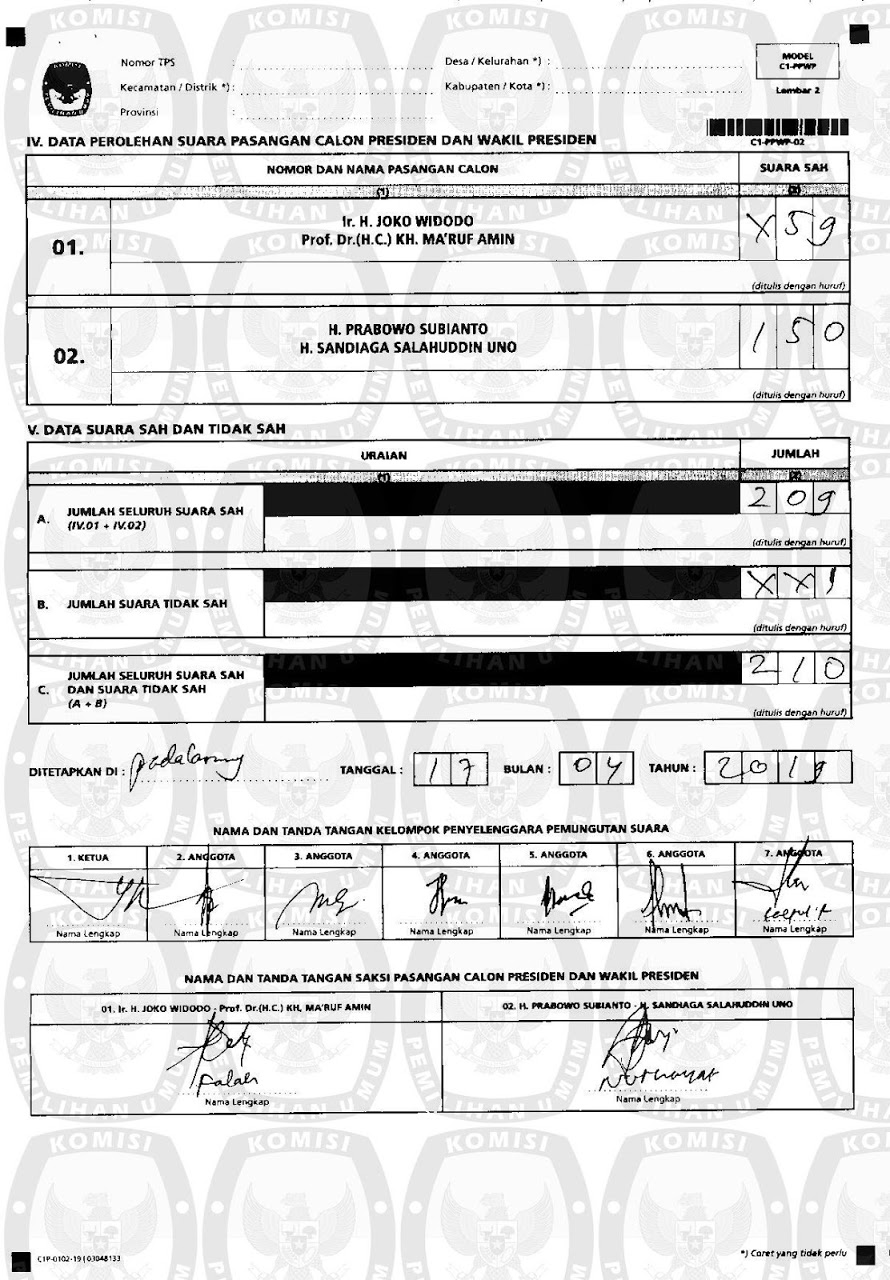 Nomor TPS :
Desa / Kelurahan *) :
MODEL
C1-PPWP
Kecamatan / Distrik *) :
Kabupaten / Kota *) :
Lembar 2
Provinsi :
C1-PPWP-02
IV. DATA PEROLEHAN SUARA PASANGAN CALON PRESIDEN DAN WAKIL PRESIDEN
NOMOR DAN NAMA PASANGAN CALON SUARA SAH
(1) (2)
01.
Ir. H. JOKO WIDODO
Prof. Dr.(H.C.) KH. MA'RUF AMIN
X 5 9
(ditulis dengan huruf)
02.
H. PRABOWO SUBIANTO
H. SANDIAGA SALAHUDDIN UNO
1 5 0
(ditulis dengan huruf)
V. DATA SUARA SAH DAN TIDAK SAH
URAIAN JUMLAH
(1) (2)
A. JUMLAH SELURUH SUARA SAH
(IV.01 + IV.02)
2 0 9
(ditulis dengan huruf)
B. JUMLAH SUARA TIDAK SAH
X X 1
(ditulis dengan huruf)
C. JUMLAH SELURUH SUARA SAH
DAN SUARA TIDAK SAH
(A + B)
2 1 0
(ditulis dengan huruf)
DITETAPKAN DI : TANGGAL : 1 7 BULAN : 0 4 TAHUN : 2 0 1 9
NAMA DAN TANDA TANGAN KELOMPOK PENYELENGGARA PEMUNGUTAN SUARA
1. KETUA 2. ANGGOTA 3. ANGGOTA 4. ANGGOTA 5. ANGGOTA 6. ANGGOTA 7. ANGGOTA
Nama Lengkap Nama Lengkap Nama Lengkap Nama Lengkap Nama Lengkap Nama Lengkap Nama Lengkap
NAMA DAN TANDA TANGAN SAKSI PASANGAN CALON PRESIDEN DAN WAKIL PRESIDEN
01. Ir. H. JOKO WIDODO - Prof. Dr.(H.C.) KH. MA'RUF AMIN
02. H. PRABOWO SUBIANTO - H. SANDIAGA SALAHUDDIN UNO
Falah
Nama Lengkap
Nama Lengkap
C1P-0102-19 | 03048133
*) Coret yang tidak perlu